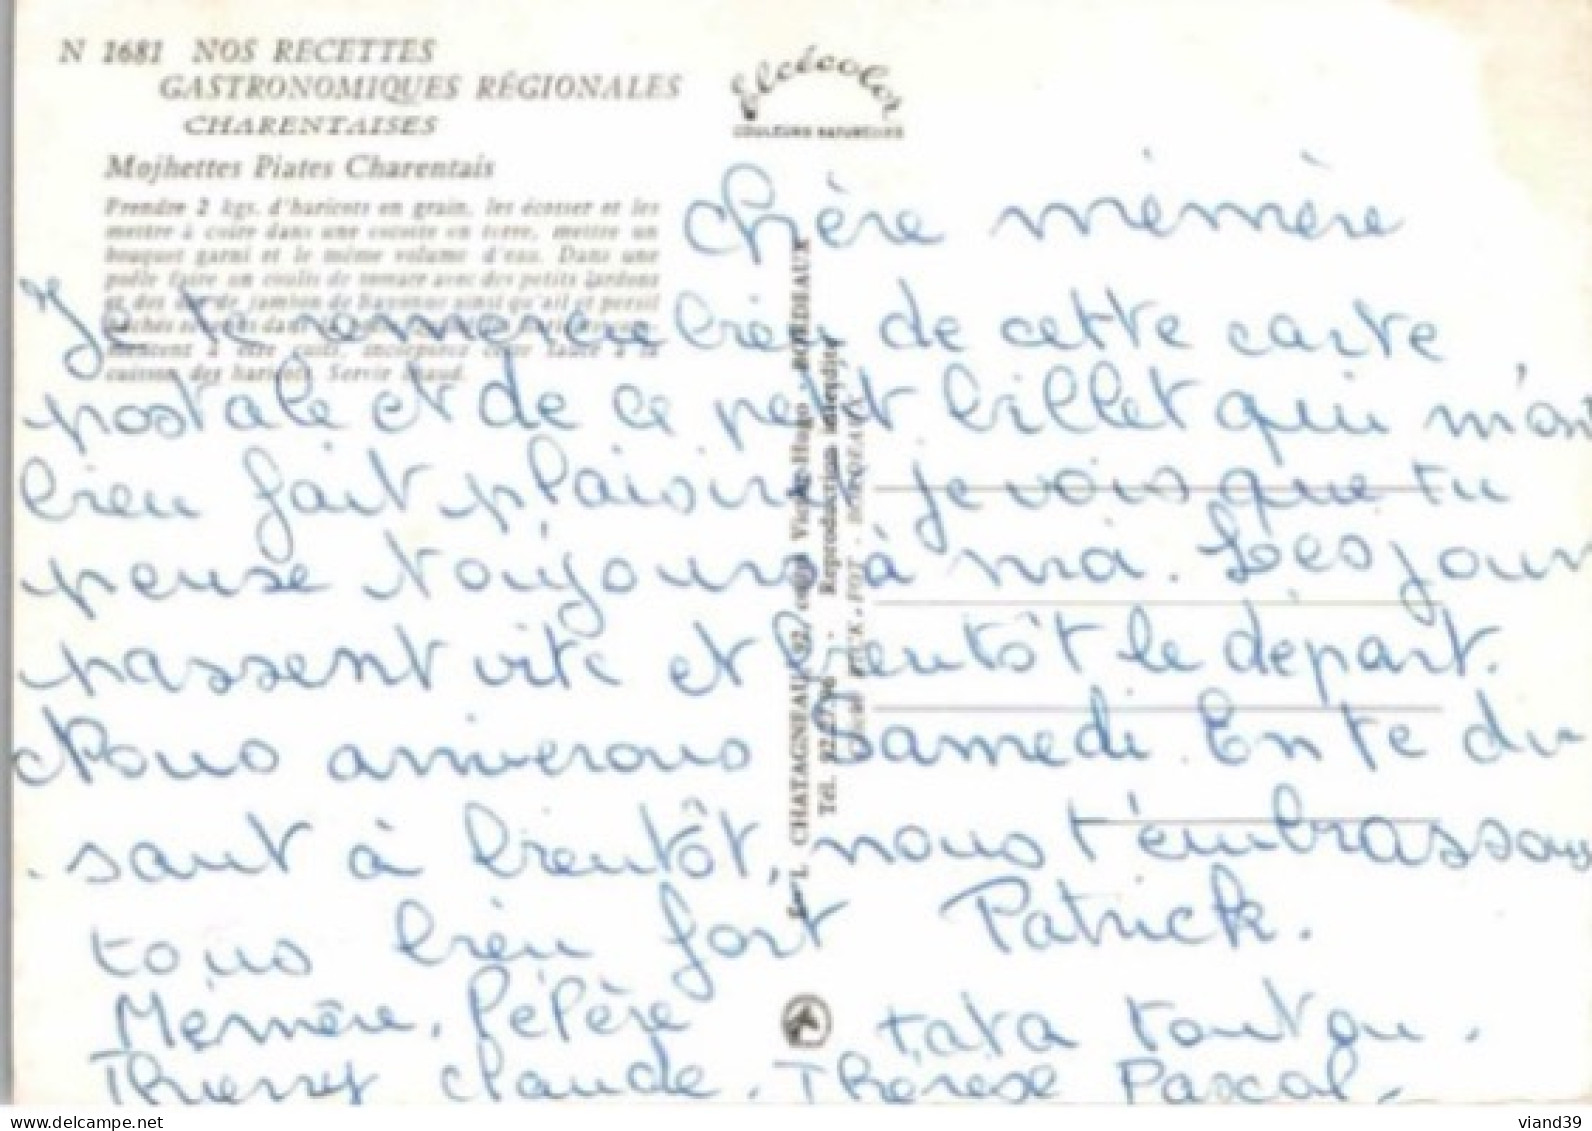 N 1681 NOS RECETTES
GASTRONOMIQUES RÉGIONALES
CHARENTAISES
Mojhettes Piates Charentais
Prendre 2 kgs. d'haricots en grain, les écosser et les
mettre à cuire dans une cocotte en terre, mettre un
bouquet garni et le même volume d'eau. Dans une
poêle faire un coulis de tomate avec des petits lardons
et des dés de jambon de Bayonne ainsi qu'ail et persil
hachés
mencent à être cuits, incorporez cette sauce à la
cuisson des haricots. Servir chaud.
Elcécolor
COULEURS NATURELLES
Chère mémère
Je te remercie bien de cette carte
postale et de ce petit billet qui m'ont
bien fait plaisir je vois que tu
pense toujours à moi. Les jour
passent vite et bientôt le départ.
Nous arriverons Samedi. En te di
sant à bientôt, nous t'embrassons
tous bien fort Patrick.
Mémère, Pépère tata tonton.
Thierry Claude. Thérèse Pascal.
L. CHATAGNEAU, 92, cours Victor-Hugo - BORDEAUX
Tél. 92-27-96 - Reproduction interdite
viand39